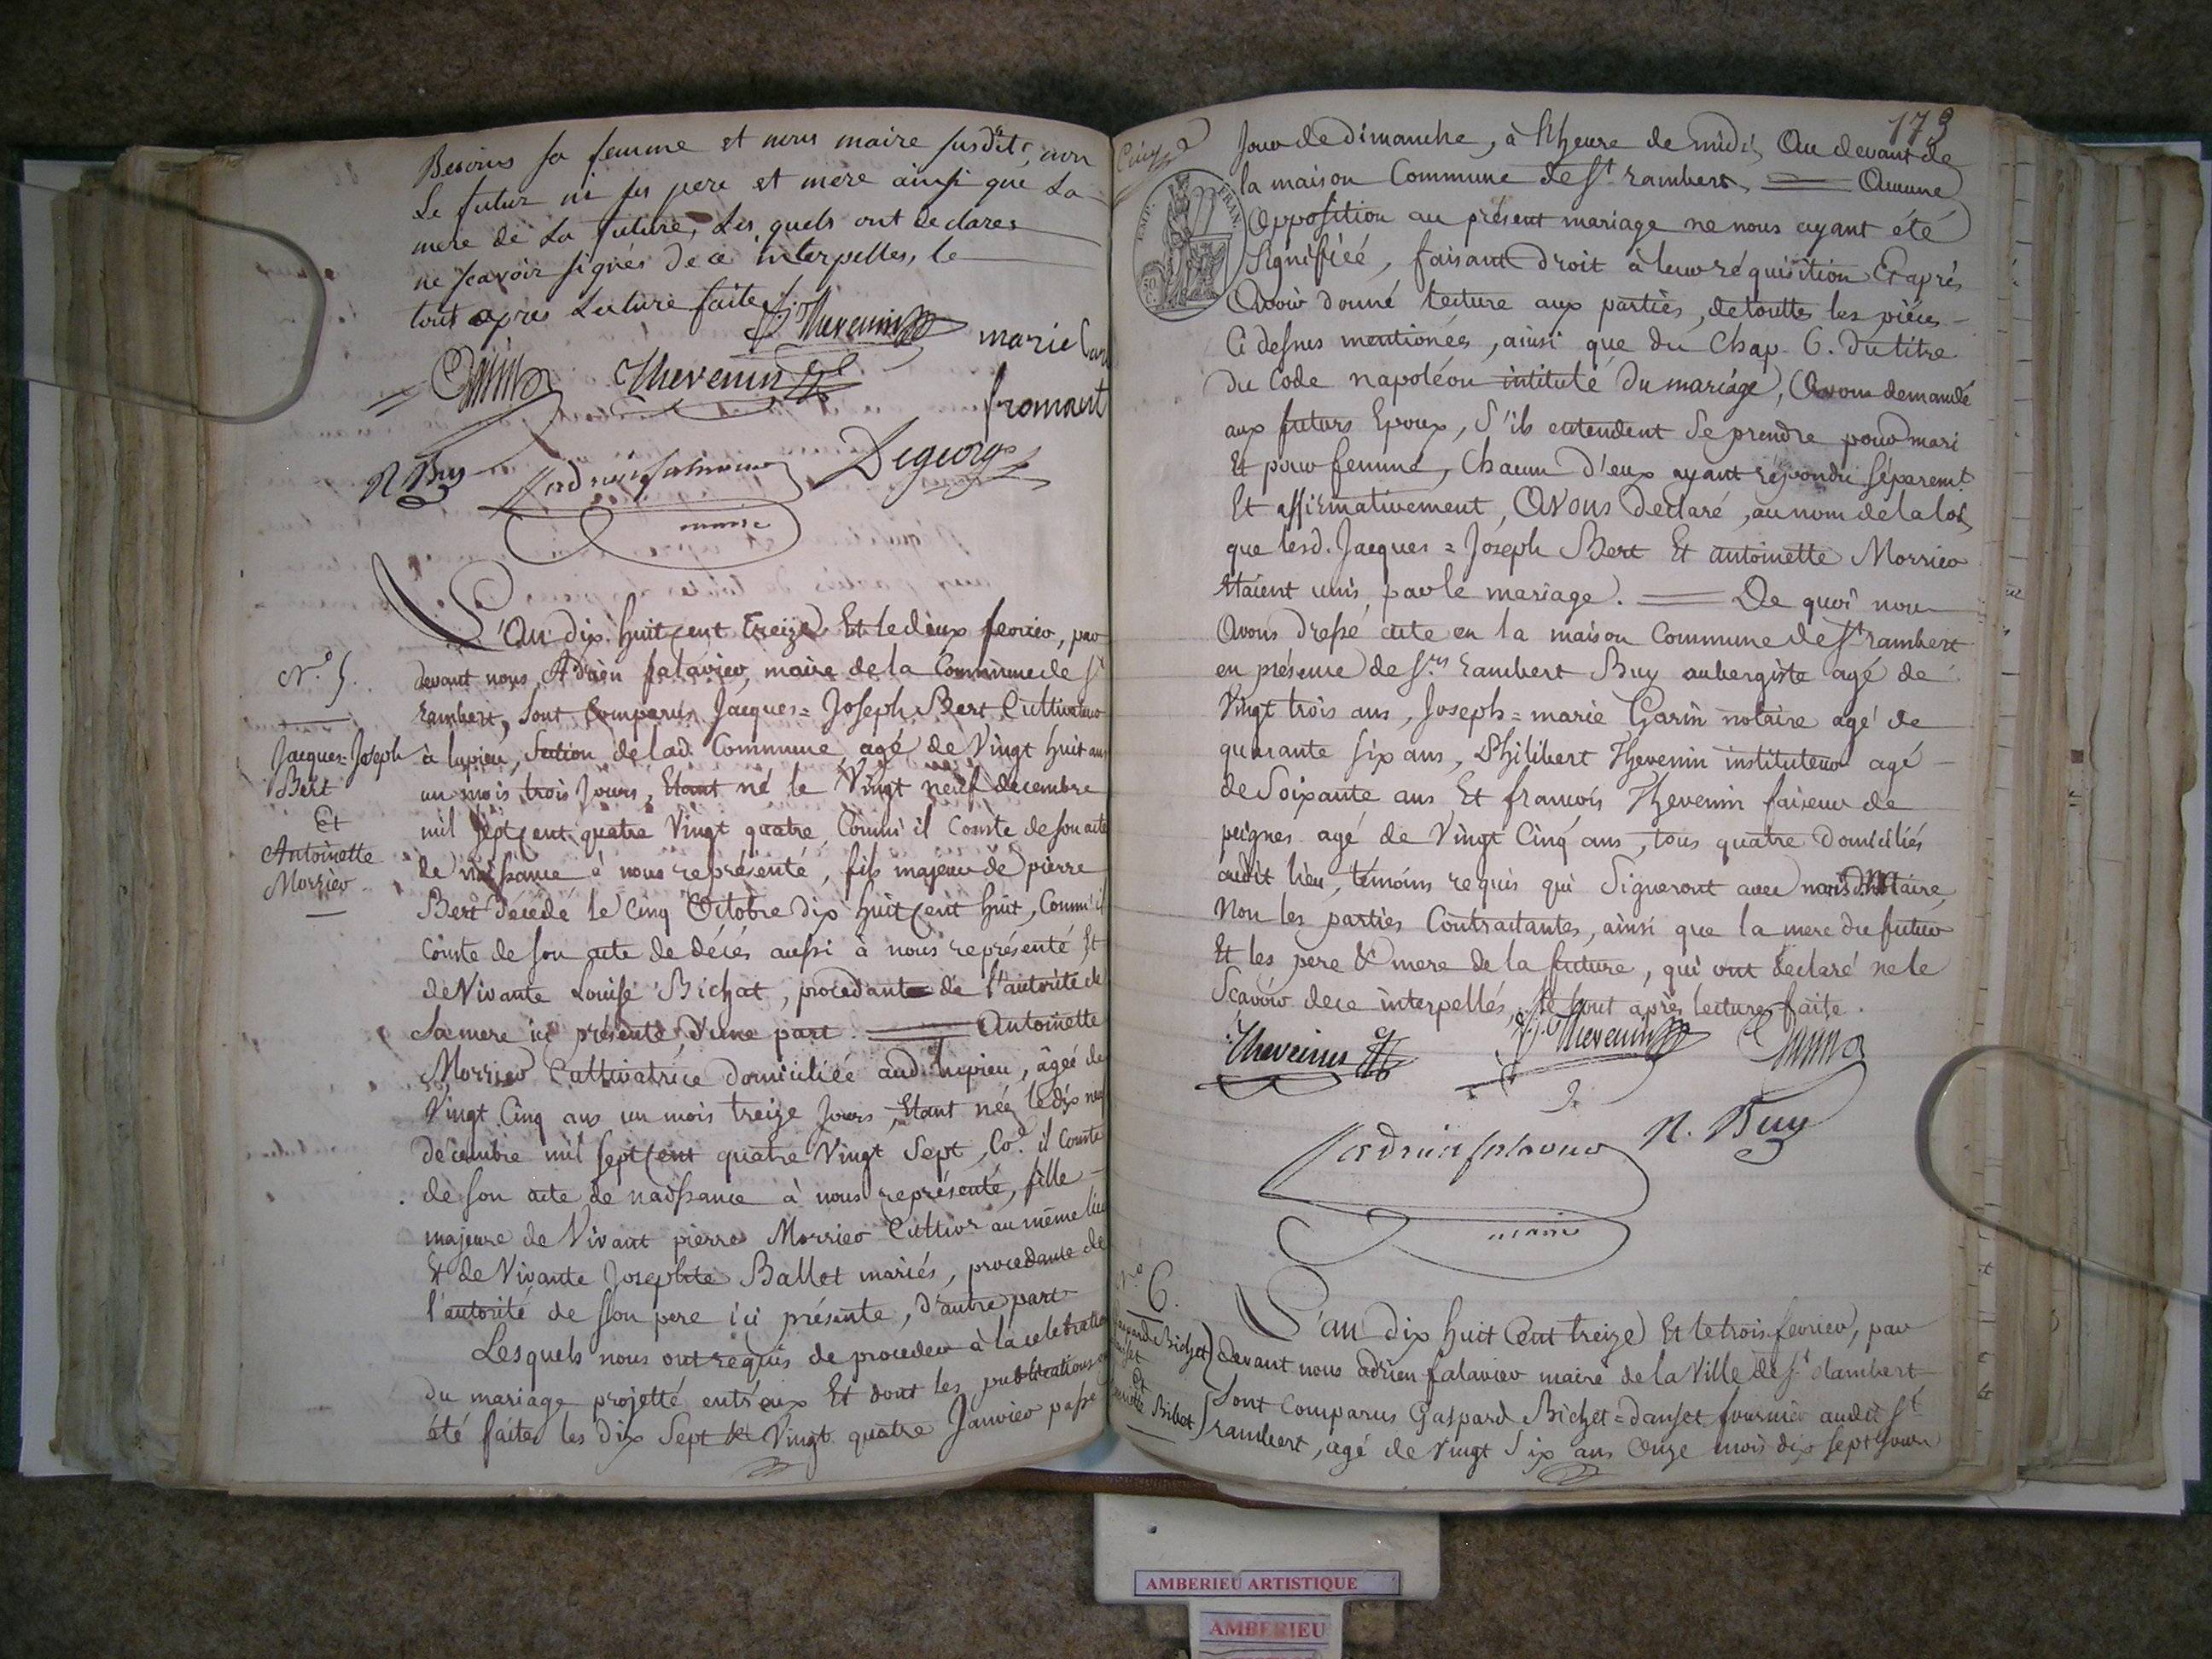 Besoins sa femme et nous maire susdit, non
Le futur ni ses pere et mere ainsi que La
mere de La future, Les quels ont declarer
ne scavoir signés de ce interpelles, le
tout apres Lecture faite
J. Thevenin
marie
Garin
Thevenin
fromant
R Buy
Degeorge
maire
L'An dix huit Cent treize Et le deux fevrier, par
devant nous Adrien falavier, maire de la Commune de St
rambert, sont Comparus Jacques=Joseph Bert Cultivateur
à lupieu, Section de lad. Commune agé de Vingt huit ans
un mois trois Jours, Etant né le Vingt neuf decembre
mil Sept Cent quatre Vingt quatre Comm' il Conste de son acte
de naissance à nous représenté, fils majeur de pierre
Bert décédé le Cinq Octobre dix huit Cent huit, Comm' il
Conste de son acte de décès aussi à nous représenté Et
de Vivante Louise Bichat, procedant de l'autorité de
Sa mere ici présente d'une part. Antoinette
Morrier Cultivatrice domiciliée aud. lupieu, âgée de
Vingt Cinq ans un mois treize Jours, Etant née le dix neuf
decembre mil Sept Cent quatre Vingt Sept, Co.e il Conste
de son acte de naissance à nous représenté, fille
majeure de Vivant pierre Morrier Cultivr au même lieu
Et de Vivante Josephte Ballet mariés, procedante de
l'autorité de Son pere ici présente, d'autre part
Lesquels nous ont requis de proceder à la celebration
du mariage projetté entr'eux Et dont les publications
été faites les dix Sept Et Vingt quatre Janvier passé
N.o 5.
Jacques=Joseph
Bert
Et
Antoinette
Morrier
173
Jour de Dimanche, à l'heure de midi, Au devant de
la maison Commune de St rambert. Aucune
Opposition au présent mariage ne nous ayant été
Signifiéé, faisant droit à leur réquisition Et après
Avoir donné lecture aux parties, de toutes les piéces
Ci desus mentionées, ainsi que du Chap. 6. du titre
du Code napoléon intitulé Du mariage, Avons demandé
aux futurs Epoux, S'ils entendent Se prendre pour mari
Et pour femme, Chacun d'eux ayant répondu Séparemt
Et affirmativement, Avons Déclaré, au nom de la loi,
que lesd. Jacques=Joseph Bert Et antoinette Morrier
étaient unis par le mariage. De quoi nous
Avons dressé acte en la maison Commune de St rambert
en présence de Srs Rambert Buy aubergiste agé de
Vingt trois ans, Joseph=marie Garin notaire agé de
quarante six ans, Philibert Thevenin instituteur agé
de Soixante ans Et françois Thevenin faiseur de
peignes agé de Vingt Cinq ans, tous quatre Domiciliés
audit lieu, témoins requis qui Signeront avec nous Maire,
Non les parties Contractantes, ainsi que la mere du futur
Et les pere & mere de la future, qui ont déclaré ne le
Scavoir de ce interpellés, Le tout après lecture faite.
Thevenin
J. Thevenin
Garin
R. Buy
adrien falavier
maire
N.o 6.
Et
Bibet
L'an dix huit Cent treize Et le trois fevrier, par
devant nous adrien falavier maire de la Ville de St Rambert
Sont Comparus Gaspard Bichet=danset fournier audit St
rambert, agé de Vingt Six ans Onze mois dix sept Jours
AMBERIEU ARTISTIQUE
AMBERIEU